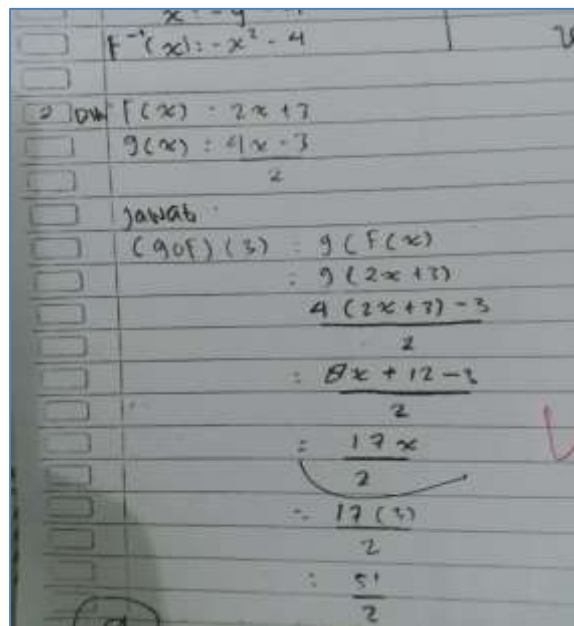 x = -y² - 4
F⁻¹(x) = -x² - 4
2 Dik F(x) = 2x + 3
g(x) = 4x - 3
2
Jawab
(gof)(3) = g(F(x)
= g(2x + 3)
4(2x + 3) - 3
2
= 8x + 12 - 3
2
= 17x
2
= 17(3)
2
= 51
2